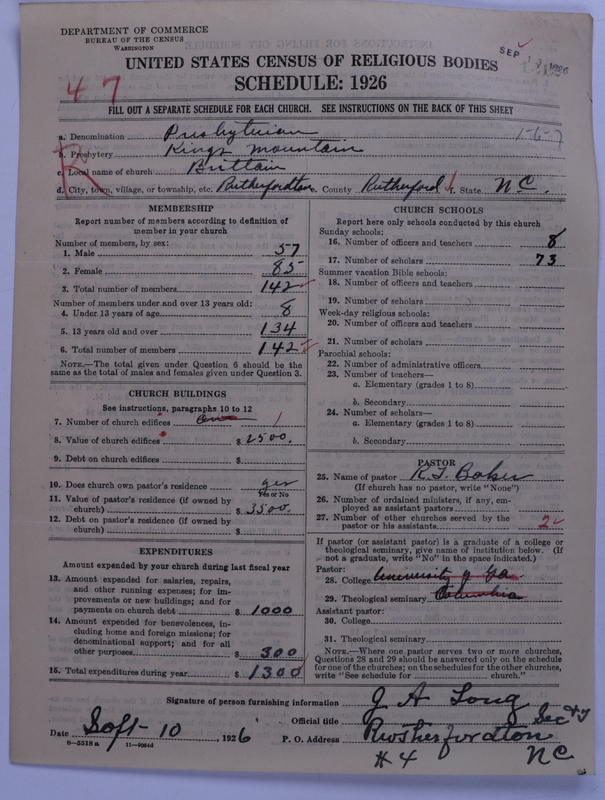 DEPARTMENT OF COMMERCE
BUREAU OF THE CENSUS
WASHINGTON
SEP
UNITED STATES CENSUS OF RELIGIOUS BODIES
SCHEDULE: 1926
47
FILL OUT A SEPARATE SCHEDULE FOR EACH CHURCH. SEE INSTRUCTIONS ON THE BACK OF THIS SHEET
a. Denomination Presbyterian 1-6-7
b. Presbytery Kings Mountain
R
c. Local name of church Brittain
d. City, town, village, or township, etc. Rutherfordton e. County Rutherford f. State N.C.
MEMBERSHIP
Report number of members according to definition of
member in your church
Number of members, by sex:
1. Male 57
2. Female 85
3. Total number of members 142
Number of members under and over 13 years old:
4. Under 13 years of age 8
5. 13 years old and over 134
6. Total number of members 142
NOTE.—The total given under Question 6 should be
same as the total of males and females given under Question 3.
CHURCH BUILDINGS
See instructions, paragraphs 10 to 12
7. Number of church edifices One 1
8. Value of church edifices $ 2500.
9. Debt on church edifices $
10. Does church own pastor's residence yes
Yes or No
11. Value of pastor's residence (if owned by
church) $ 3500.
12. Debt on pastor's residence (if owned by
church) $
EXPENDITURES
Amount expended by your church during last fiscal year
13. Amount expended for salaries, repairs,
and other running expenses; for im-
provements or new buildings; and for
payments on church debt $ 1000
14. Amount expended for benevolences, in-
cluding home and foreign missions; for
denominational support; and for all
other purposes $ 300
15. Total expenditures during year $ 1300
CHURCH SCHOOLS
Report here only schools conducted by this church
Sunday schools:
16. Number of officers and teachers 8
17. Number of scholars 73
Summer vacation Bible schools:
18. Number of officers and teachers
19. Number of scholars
Week-day religious schools:
20. Number of officers and teachers
21. Number of scholars
Parochial schools:
22. Number of administrative officers
23. Number of teachers—
a. Elementary (grades 1 to 8)
b. Secondary
24. Number of scholars—
a. Elementary (grades 1 to 8)
b. Secondary
PASTOR
25. Name of pastor R. T. Baker
(If church has no pastor, write "None")
26. Number of ordained ministers, if any, em-
ployed as assistant pastors
27. Number of other churches served by the
pastor or his assistants 2
If pastor (or assistant pastor) is a graduate of a college or
theological seminary, give name of institution below. (If
not a graduate, write "No" in the space indicated.)
Pastor:
28. College University of Ga.
29. Theological seminary Columbia
Assistant pastor:
30. College
31. Theological seminary
NOTE.—Where one pastor serves two or more churches,
Questions 28 and 29 should be answered only on the schedule
for one of the churches; on the schedules for the other churches,
write "See schedule for church."
Signature of person furnishing information J A Long
Official title Sec & T
Date Sept-10, 1926 P. O. Address Rutherfordton
8-5518a 11-9054d
# 4 NC